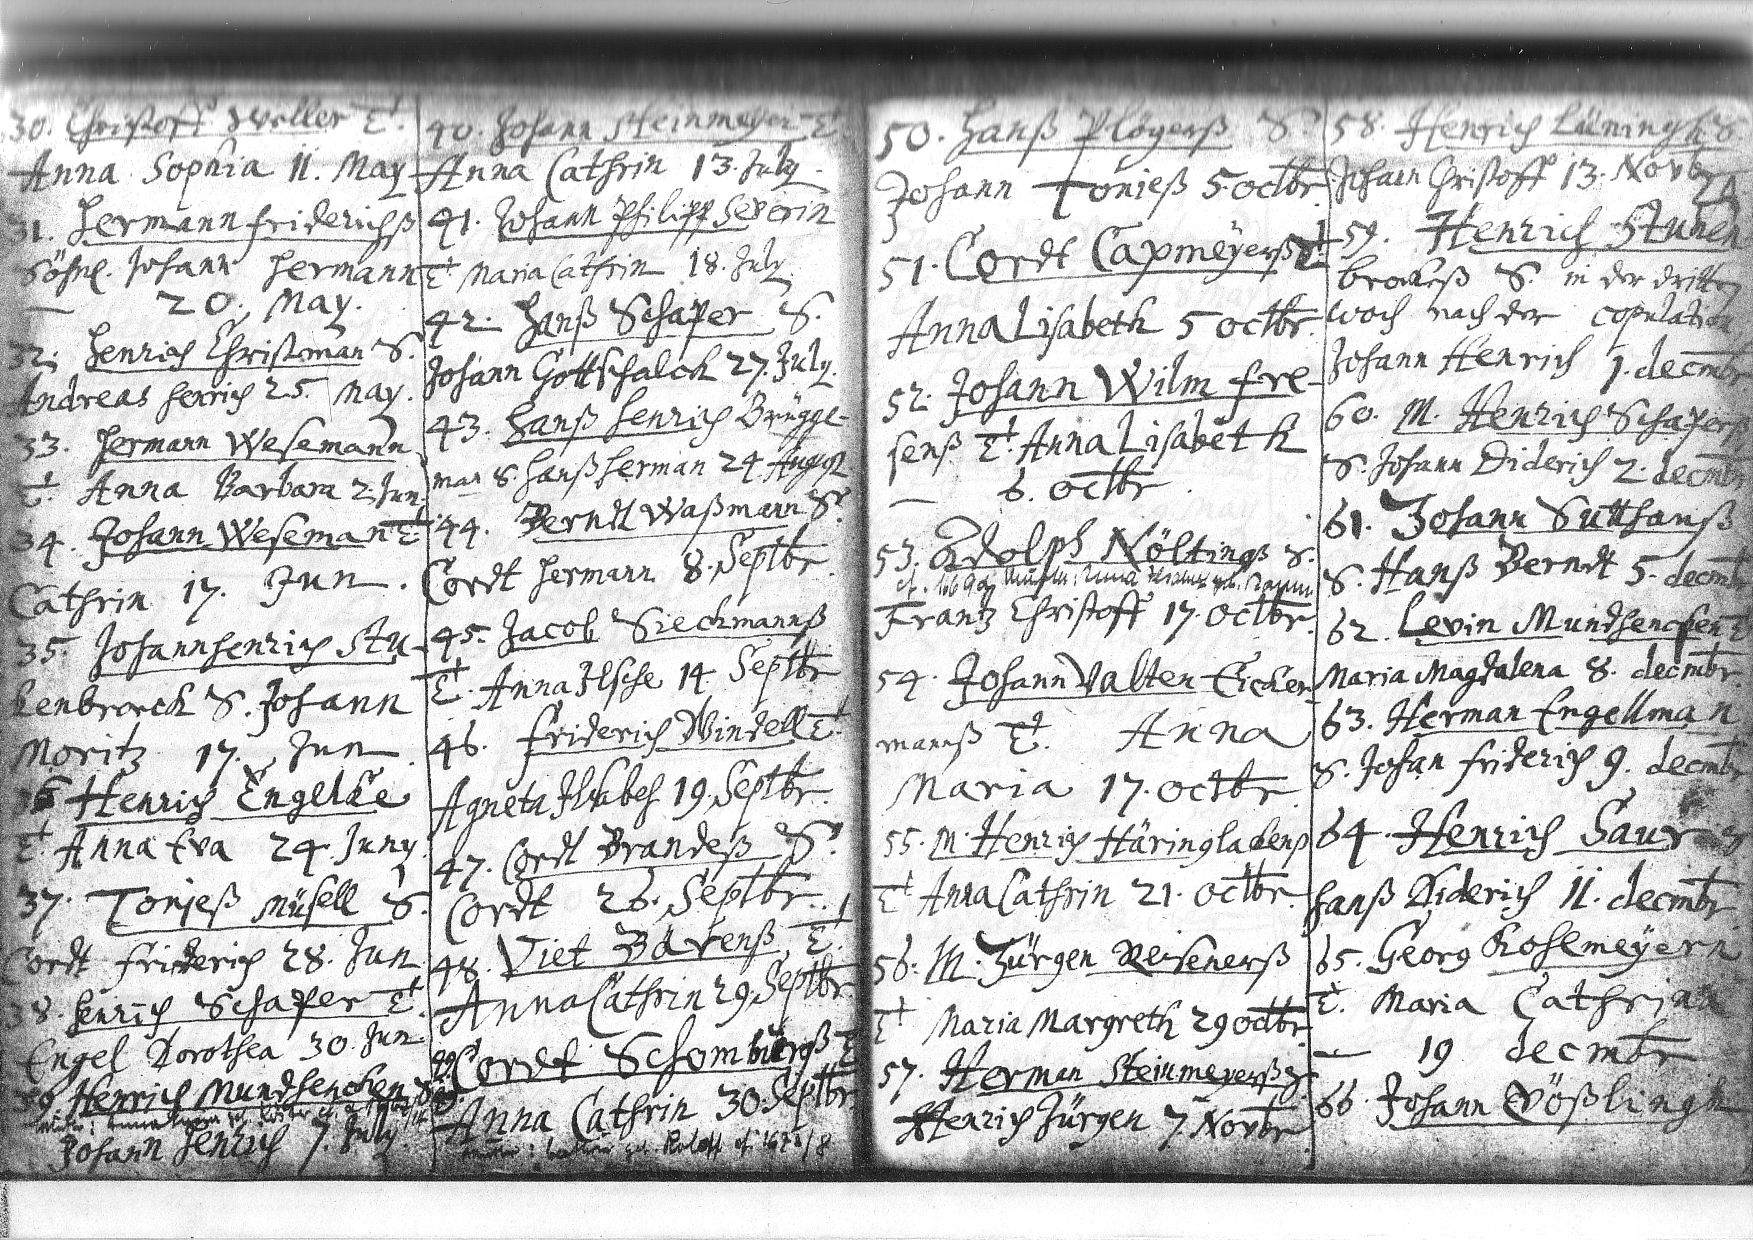 30. Christoff Weller T.
Anna Sophia 11. May
31. Hermann friderichß
Söhnl. Johann Hermann
20. May.
32. Henrich Christman S.
Andreas Henrich 25. May.
33. Hermann Wesemann
T. Anna Barbara 2. Jun.
34. Johann Weseman T.
Cathrin 17. Jun.
35. Johann henrich Stu-
kenbrorck S. Johann
Moritz 17. Jun
36 Henrich Engelke
T. Anna Eva 24. Juny.
37. Tonjeß Müsell S.
Cordt friderich 28. Jun
38. Henrich Schaper T.
Engel Dorothea 30. Jun
39. Henrich Mundhencken
Johann Henrich 7. July
40. Johann Steinmeyer T.
Anna Cathrin 13. July.
41. Johann Philipp Severin
T. Maria Cathrin 18. July.
42. Hanß Schaper S.
Johann Gottschalck 27. July.
43. Hanß Henrich Brügge-
man S. Hanß Herman 24 August
44. Berndt Waßmann S.
Cordt Hermann 8. Septbr.
45. Jacob Sieckmannß
T. Anna Ilsche 14 Septbr
46. Friderich Windell T.
Agneta Ilsabeh 19. Septbr.
47. Cordt Brandeß S.
Cordt 26. Septbr.
48. Viet Bövenß T.
Anna Cathrin 29. Septbr
49. Cordt Schomburgß T
Anna Cathrin 30. Septbr.
50. Hanß Plögerß S.
Johann Tönieß 5. octbr.
51. Cordt Capmeyerß T
Anna Lisabeth 5 octbr.
52. Johann Wilm fre-
senß T. Anna Lisabeth
6. octbr.
53. Adolph Nöltingß S.
Frantz Christoff 17. octbr.
54. Johann Valten Eicker
mannß T. Anna
Maria 17. octbr.
55. M. Henrich Häringlakenß
T. Anna Cathrin 21. octbr.
56. M. Jürgen Reisenerß
T Maria Margreth 29 octbr.
57. Herman Steinmeyerß S
Henrich Jürgen 7. Novbr.
58. Henrich Lüningh S.
Johann Christoff 13. Novbr
59. Henrich Stuken
brockeß S. in der dritten
woch nach der copulation
Johann Henrich 1. decmbr
60. M. Henrich Schaperß
S. Johann Diderich 2. decmbr
61. Johann Sutthanß
S. Hanß Berndt 5. decmbr
62. Levin Mundhencken T
Maria Magdalena 8. decmbr.
63. Herman Engellman
S. Johan friderich 9. decmbr
64. Henrich Saur
Hanß Diderich 11. decmbr
65. Georg Kohlmeyern
T. Maria Cathrina
19 decmbr
66. Johann Vößlingh